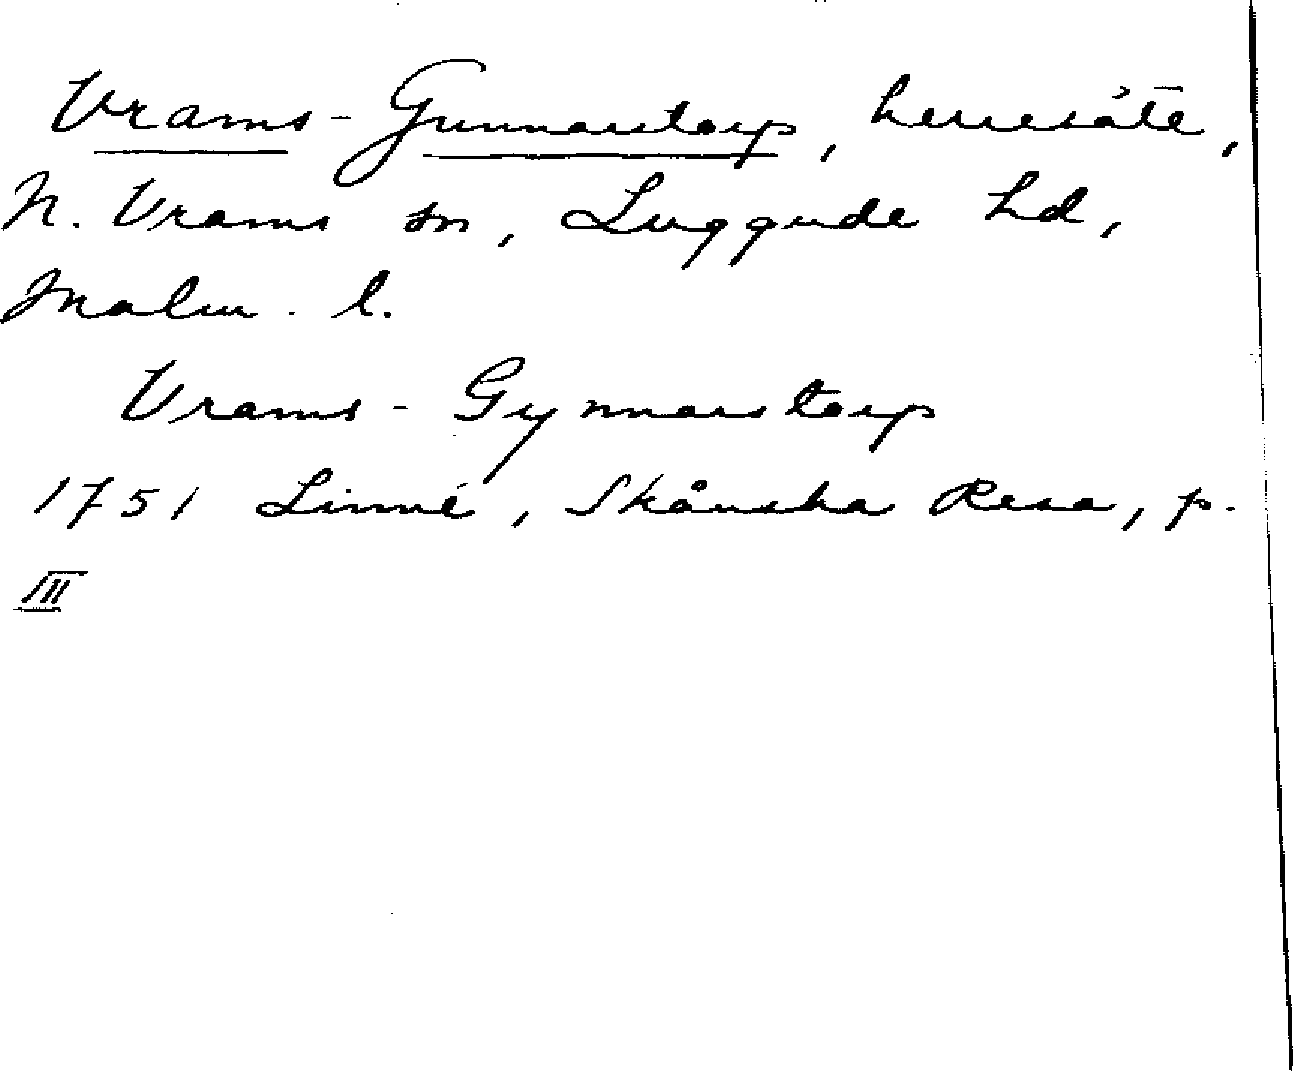 Vrams-Gunnarstorp, herresäte,
N. Vrams sn, Luggude hd,
Malm. l.
Vrams-Gynnarstorp
1751 Linné, Skånska Resa, p.
III